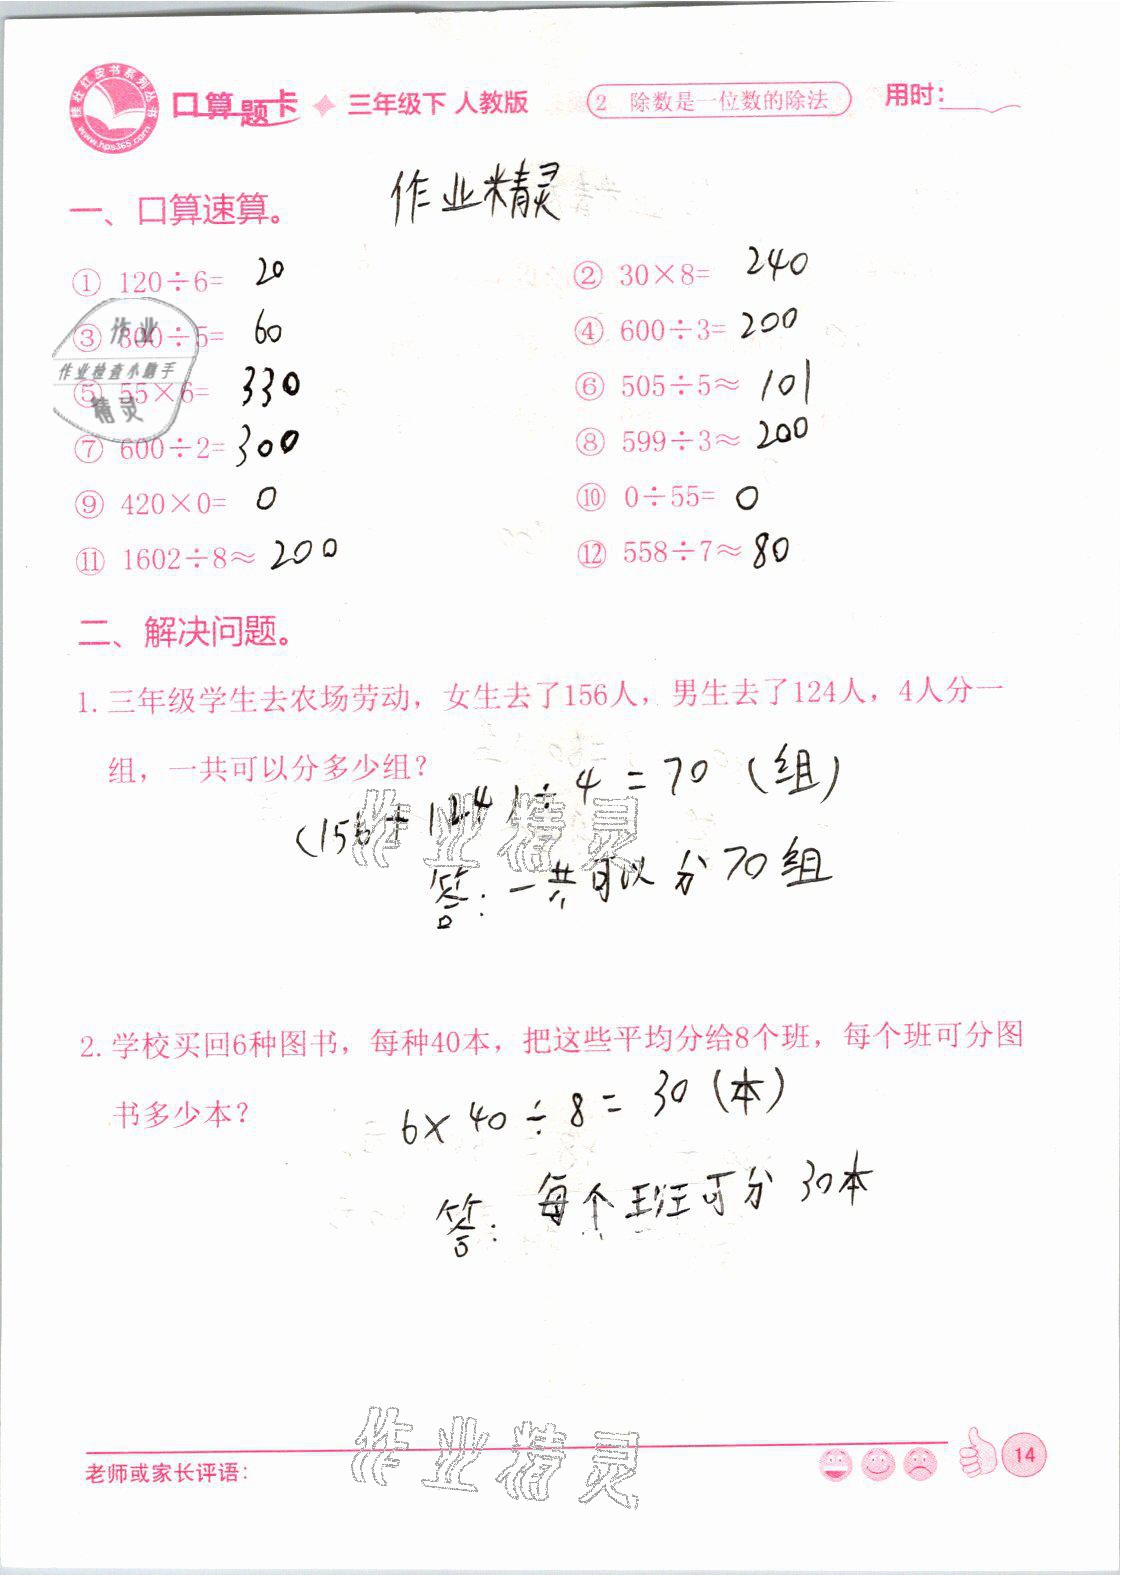 桂壮红皮书系列丛书
www.hps365.com
口算题卡 三年级下 人教版 2 除数是一位数的除法 用时:
一、口算速算。 作业精灵
① 120÷6= 20 ② 30×8= 240
③ 300÷5= 60 ④ 600÷3= 200
作业
作业检查小助手
精灵
⑤ 55×6= 330 ⑥ 505÷5≈ 101
⑦ 600÷2= 300 ⑧ 599÷3≈ 200
⑨ 420×0= 0 ⑩ 0÷55= 0
⑪ 1602÷8≈ 200 ⑫ 558÷7≈ 80
二、解决问题。
1. 三年级学生去农场劳动，女生去了156人，男生去了124人，4人分一
组，一共可以分多少组？
(156+124)÷4=70（组）
作业精灵
答：一共可以分70组
2. 学校买回6种图书，每种40本，把这些平均分给8个班，每个班可分图
书多少本？
6×40÷8=30（本）
答：每个班可分30本
作业精灵
老师或家长评语： 14